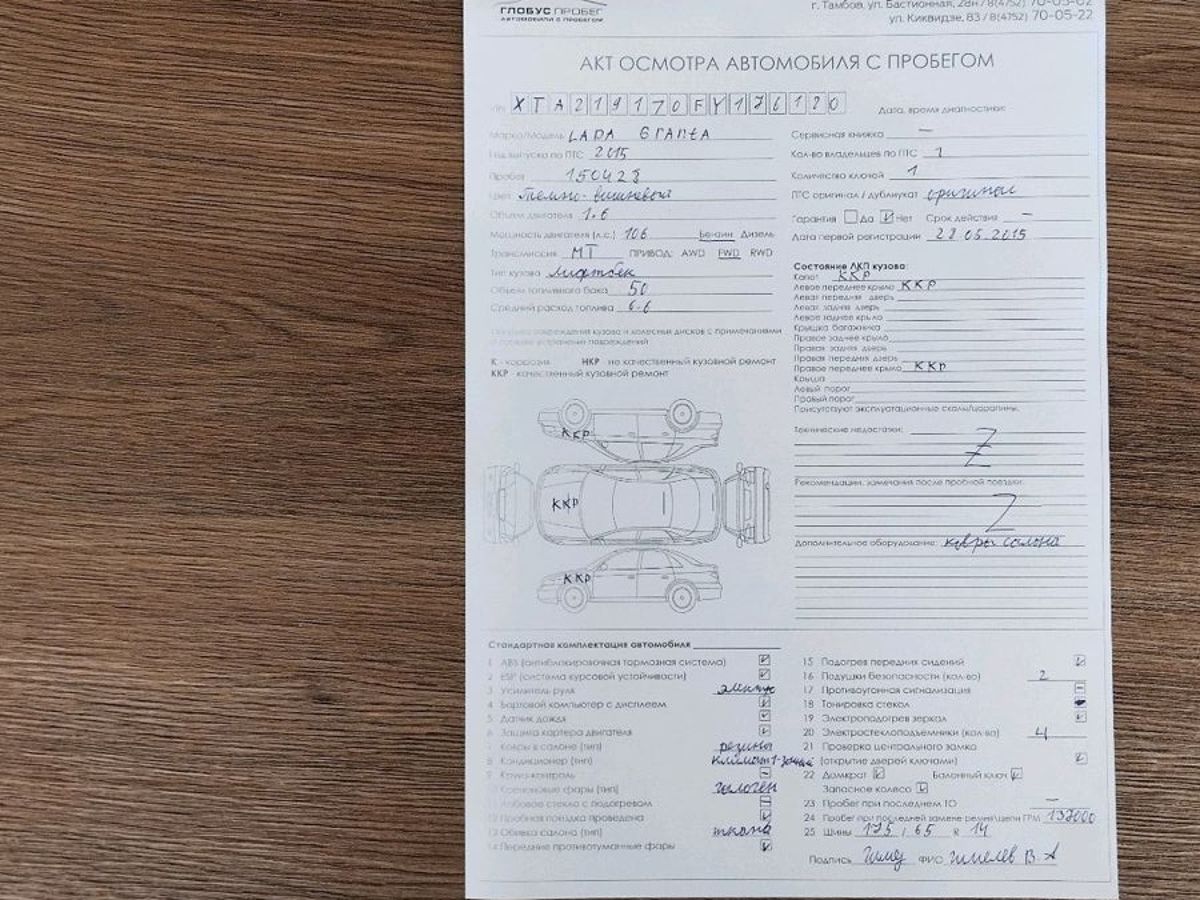 ГЛОБУС ПРОБЕГ
АВТОМОБИЛИ С ПРОБЕГОМ
г. Тамбов, ул. Бастионная, 28н / 8(4752) 70-05-02
ул. Киквидзе, 83 / 8(4752) 70-05-22
АКТ ОСМОТРА АВТОМОБИЛЯ С ПРОБЕГОМ
VIN XTA219170FY176120
Дата, время диагностики:
Марка/Модель LADA GRANTA
Год выпуска по ПТС 2015
Пробег 150428
Цвет Темно-вишневый
Объем двигателя 1.6
Мощность двигателя (л.с.) 106 Бензин Дизель
Трансмиссия МТ ПРИВОД: AWD FWD RWD
Тип кузова лифтбек
Объем топливного бака 50
Средний расход топлива 6.6
Сервисная книжка —
Кол-во владельцев по ПТС 1
Количество ключей 1
ПТС оригинал / дубликат оригинал
Гарантия Да Нет Срок действия —
Дата первой регистрации 28.05.2015
повреждения кузова и колесных дисков с примечаниями
устранения повреждений
К - коррозия НКР - не качественный кузовной ремонт
ККР - качественный кузовной ремонт
Состояние ЛКП кузова:
Капот ККР
Левое переднее крыло ККР
Левая передняя дверь
Левая задняя дверь
Левое заднее крыло
Крышка багажника
Правое заднее крыло
Правая задняя дверь
Правая передняя дверь
Правое переднее крыло ККР
Крыша
Левый порог
Правый порог
Присутствуют эксплуатационные сколы/царапины.
Технические недостатки: Z
Рекомендации, замечания после пробной поездки:
Z
Дополнительное оборудование: ковры салона
ККР
ККР
ККР
Стандартная комплектация автомобиля
1 ABS (антиблокировочная тормозная система)
2 ESP (система курсовой устойчивости)
3 Усилитель руля
4 Бортовой компьютер с дисплеем
5 Датчик дождя
6 Защита картера двигателя
7 Ковры в салоне (тип) резины
8 Кондиционер (тип) климат 1-зонный
9 Круиз-контроль —
10 Ксеноновые фары (тип) галоген
11 Лобовое стекло с подогревом —
12 Пробная поездка проведена
13 Обивка салона (тип) ткань
14 Передние противотуманные фары
15 Подогрев передних сидений
16 Подушки безопасности (кол-во) 2
17 Противоугонная сигнализация —
18 Тонировка стекол
19 Электроподогрев зеркал
20 Электростеклоподъемники (кол-во) 4
21 Проверка центрального замка
(открытие дверей ключами)
22 Домкрат Балонный ключ
Запасное колесо
23 Пробег при последнем ТО —
24 Пробег при последней замене ремня/цепи ГРМ 137000
25 Шины 175 / 65 R 14
Подпись ФИО Шмелев В.А